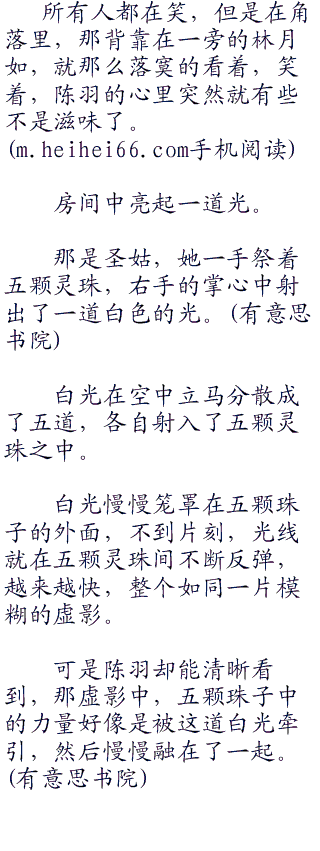 所有人都在笑，但是在角
落里，那背靠在一旁的林月
如，就那么落寞的看着，笑
着，陈羽的心里突然就有些
不是滋味了。
(m.heihei66.com手机阅读)
房间中亮起一道光。
那是圣姑，她一手祭着
五颗灵珠，右手的掌心中射
出了一道白色的光。(有意思
书院)
白光在空中立马分散成
了五道，各自射入了五颗灵
珠之中。
白光慢慢笼罩在五颗珠
子的外面，不到片刻，光线
就在五颗灵珠间不断反弹，
越来越快，整个如同一片模
糊的虚影。
可是陈羽却能清晰看
到，那虚影中，五颗珠子中
的力量好像是被这道白光牵
引，然后慢慢融在了一起。
(有意思书院)